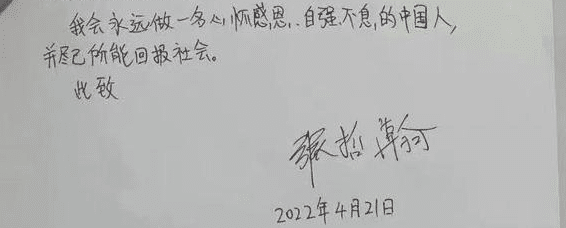 我会永远做一名心怀感恩、自强不息的中国人，
并尽己所能回报社会。
此致
张哲瀚
2022年4月21日